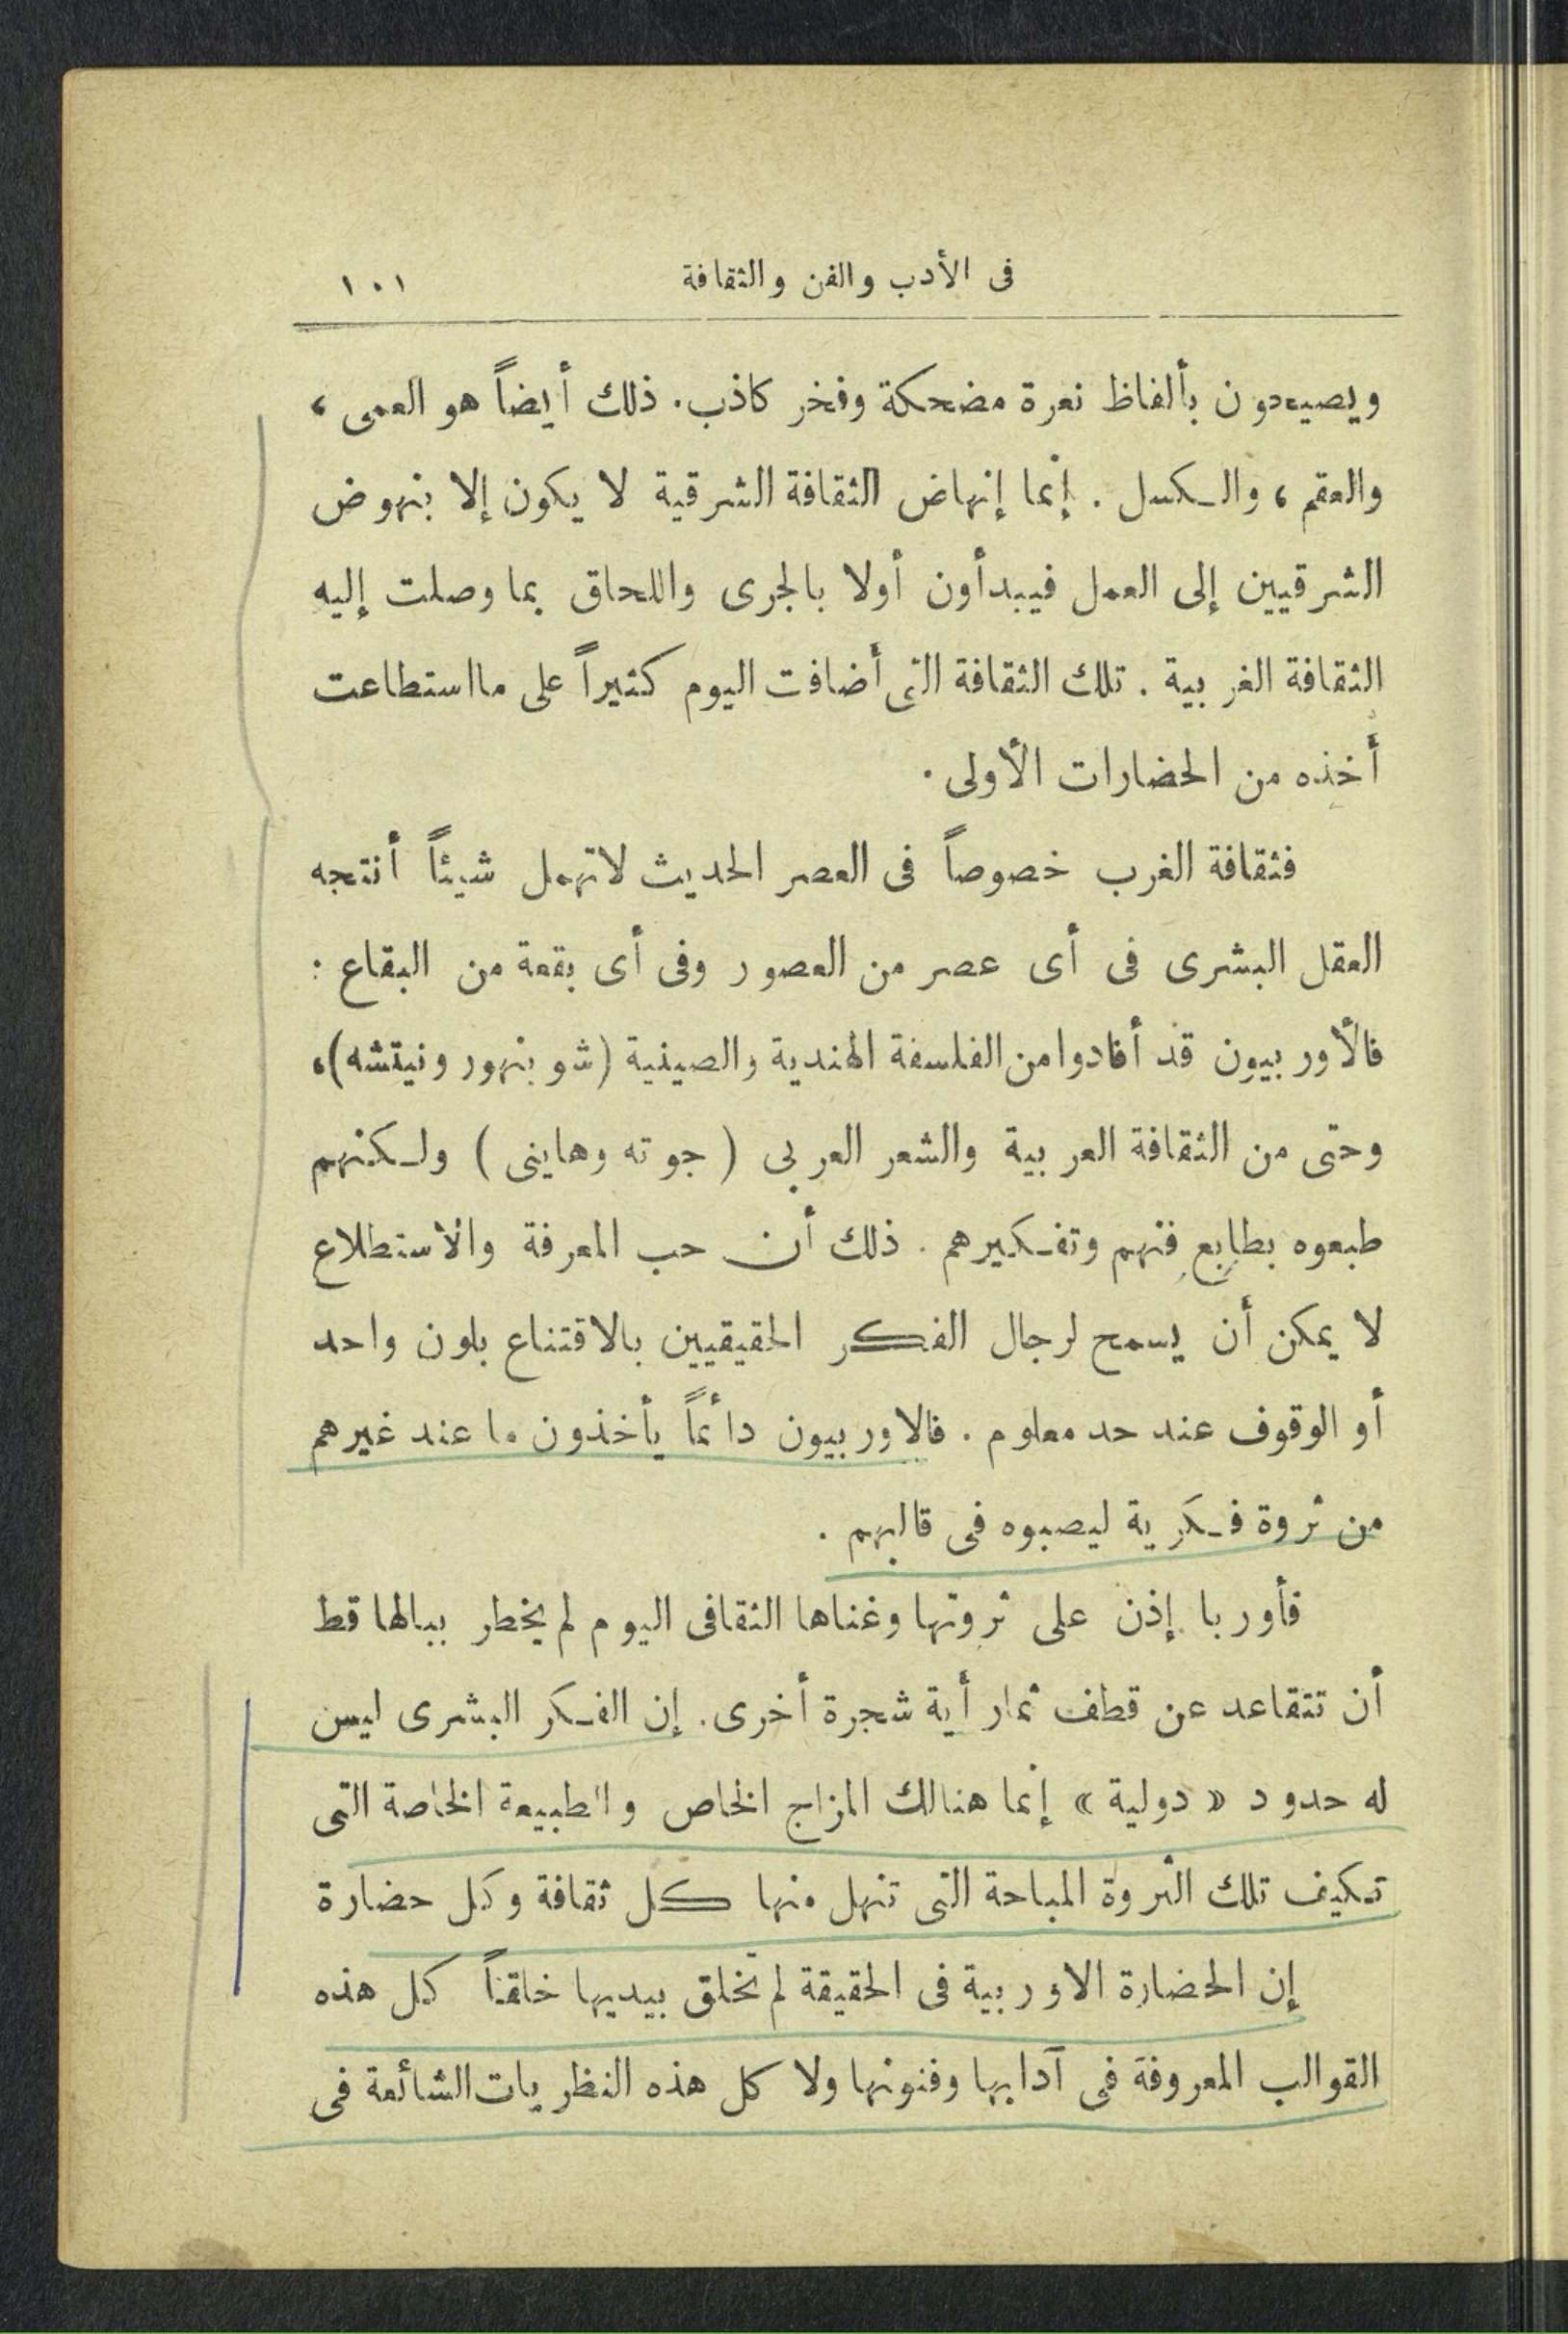 فى الأدب والفن والثقافة ١٠١
ويصيحون بألفاظ نعرة مضحكة وفخر كاذب. ذلك أيضاً هو العمى ،
والعقم ، والكسل . إنما إنهاض الثقافة الشرقية لا يكون إلا بنهوض
الشرقيين إلى العمل فيبدأون أولا بالجرى واللحاق بما وصلت إليه
الثقافة الغربية . تلك الثقافة التى أضافت اليوم كثيراً على ما استطاعت
أخذه من الحضارات الأولى .
فثقافة الغرب خصوصاً فى العصر الحديث لا تهمل شيئاً أنتجه
العقل البشرى فى أى عصر من العصور وفى أى بقعة من البقاع :
فالأوربيون قد أفادوا من الفلسفة الهندية والصينية (شوبنهور ونيتشه) ،
وحتى من الثقافة العربية والشعر العربى ( جوته وهاينى ) ولكنهم
طبعوه بطابع فنهم وتفكيرهم . ذلك أن حب المعرفة والاستطلاع
لا يمكن أن يسمح لرجال الفكر الحقيقيين بالاقتناع بلون واحد
أو الوقوف عند حد معلوم . فالاوربيون دائماً يأخذون ما عند غيرهم
من ثروة فكرية ليصبوه فى قالبهم .
فأوربا إذن على ثروتها وغناها الثقافى اليوم لم يخطر ببالها قط
أن تتقاعد عن قطف ثمار أية شجرة أخرى. إن الفكر البشرى ليس
له حدود « دولية » إنما هنالك المزاج الخاص والطبيعة الخاصة التى
تكيف تلك الثروة المباحة التى تنهل منها كل ثقافة وكل حضارة
إن الحضارة الاوربية فى الحقيقة لم تخلق بيديها خلقاً كل هذه
القوالب المعروفة فى آدابها وفنونها ولا كل هذه النظريات الشائعة فى